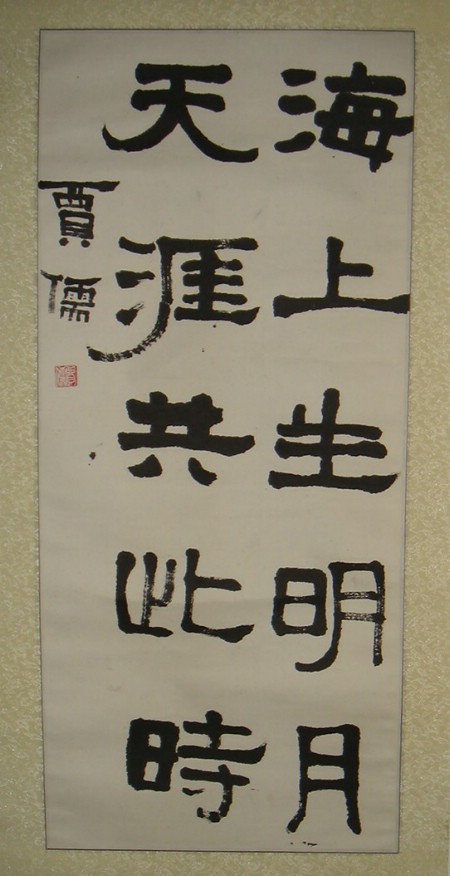 海上生明月
天涯共此時
賈儒